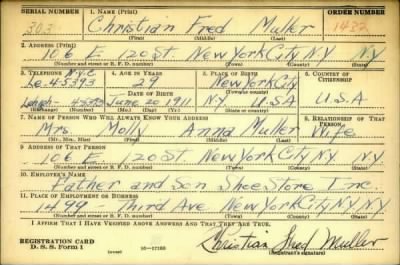 SERIAL NUMBER 1. NAME (Print) ORDER NUMBER
303 Christian Fred Muller 1482
(First) (Middle) (Last)
2. ADDRESS (Print)
106 E. 120 St. New York City N.Y. NY
(Number and street or R. F. D. number) (Town) (County) (State)
3. TELEPHONE 4. AGE IN YEARS 5. PLACE OF BIRTH 6. COUNTRY OF CITIZENSHIP
N.Y.C
Le. 4-5393 29 New York City
DATE OF BIRTH (Town or county)
Lehigh- 4-5393 June 20 1911 N.Y. USA U.S.A.
(Exchange) (No.) (Mo.) (Day) (Yr.) (State or country)
7. NAME OF PERSON WHO WILL ALWAYS KNOW YOUR ADDRESS 8. RELATIONSHIP OF THAT PERSON
Mrs. Molly Anna Muller Wife
(Mr., Mrs., Miss) (First) (Middle) (Last)
9. ADDRESS OF THAT PERSON
106 E. 120 St. New York City N.Y. N.Y.
(Number and street or R. F. D. number) (Town) (County) (State)
10. EMPLOYER'S NAME
Father and Son Shoe Store Inc.
11. PLACE OF EMPLOYMENT OR BUSINESS
1499 - Third Ave New York City N.Y. NY
(Number and street or R. F. D. number) (Town) (County) (State)
I AFFIRM THAT I HAVE VERIFIED ABOVE ANSWERS AND THAT THEY ARE TRUE.
REGISTRATION CARD
D. S. S. Form 1 (over) 16-17105 Christian Fred Muller
(Registrant's signature)